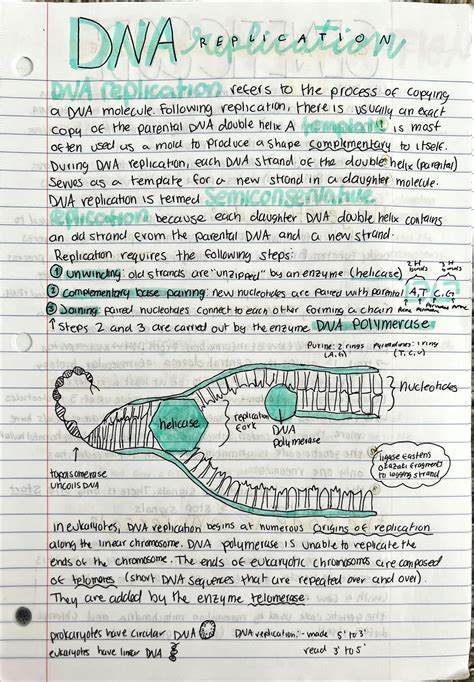 DNA REPLICATION
DNA replication refers to the process of copying
a DNA molecule. Following replication, there is usually an exact
copy of the parental DNA double helix. A template is most
often used as a mold to produce a shape complementary to itself.
During DNA replication, each DNA strand of the double helix (parental)
serves as a template for a new strand in a daughter molecule.
DNA replication is termed Semiconservative
replication because each daughter DNA double helix contains
an old strand from the parental DNA and a new strand.
Replication requires the following steps:
① unwinding: old strands are "unzipped" by an enzyme (helicase)
2 H bonds 3 H bonds
② Complementary base pairing: new nucleotides are paired with parental A,T C,G
③ Joining: paired nucleotides connect to each other forming a chain
↑ Steps 2 and 3 are carried out by the enzyme DNA polymerase
Purine: 2 rings Pyrimidines: 1 ring
(A, G) (T, C, U)
nucleotides
helicase
replication
fork
DNA
polymerase
topoisomerase
uncoils DNA
ligase fastens
okazaki fragments
to lagging strand
In eukaryotes, DNA replication begins at numerous origins of replication
along the linear chromosome. DNA polymerase is unable to replicate the
ends of the chromosome. The ends of eukaryotic chromosomes are composed
of telomeres (short DNA sequences that are repeated over and over).
They are added by the enzyme telomerase
prokaryotes have circular DNA DNA replication: - made 5' to 3'
eukaryotes have linear DNA read 3' to 5'